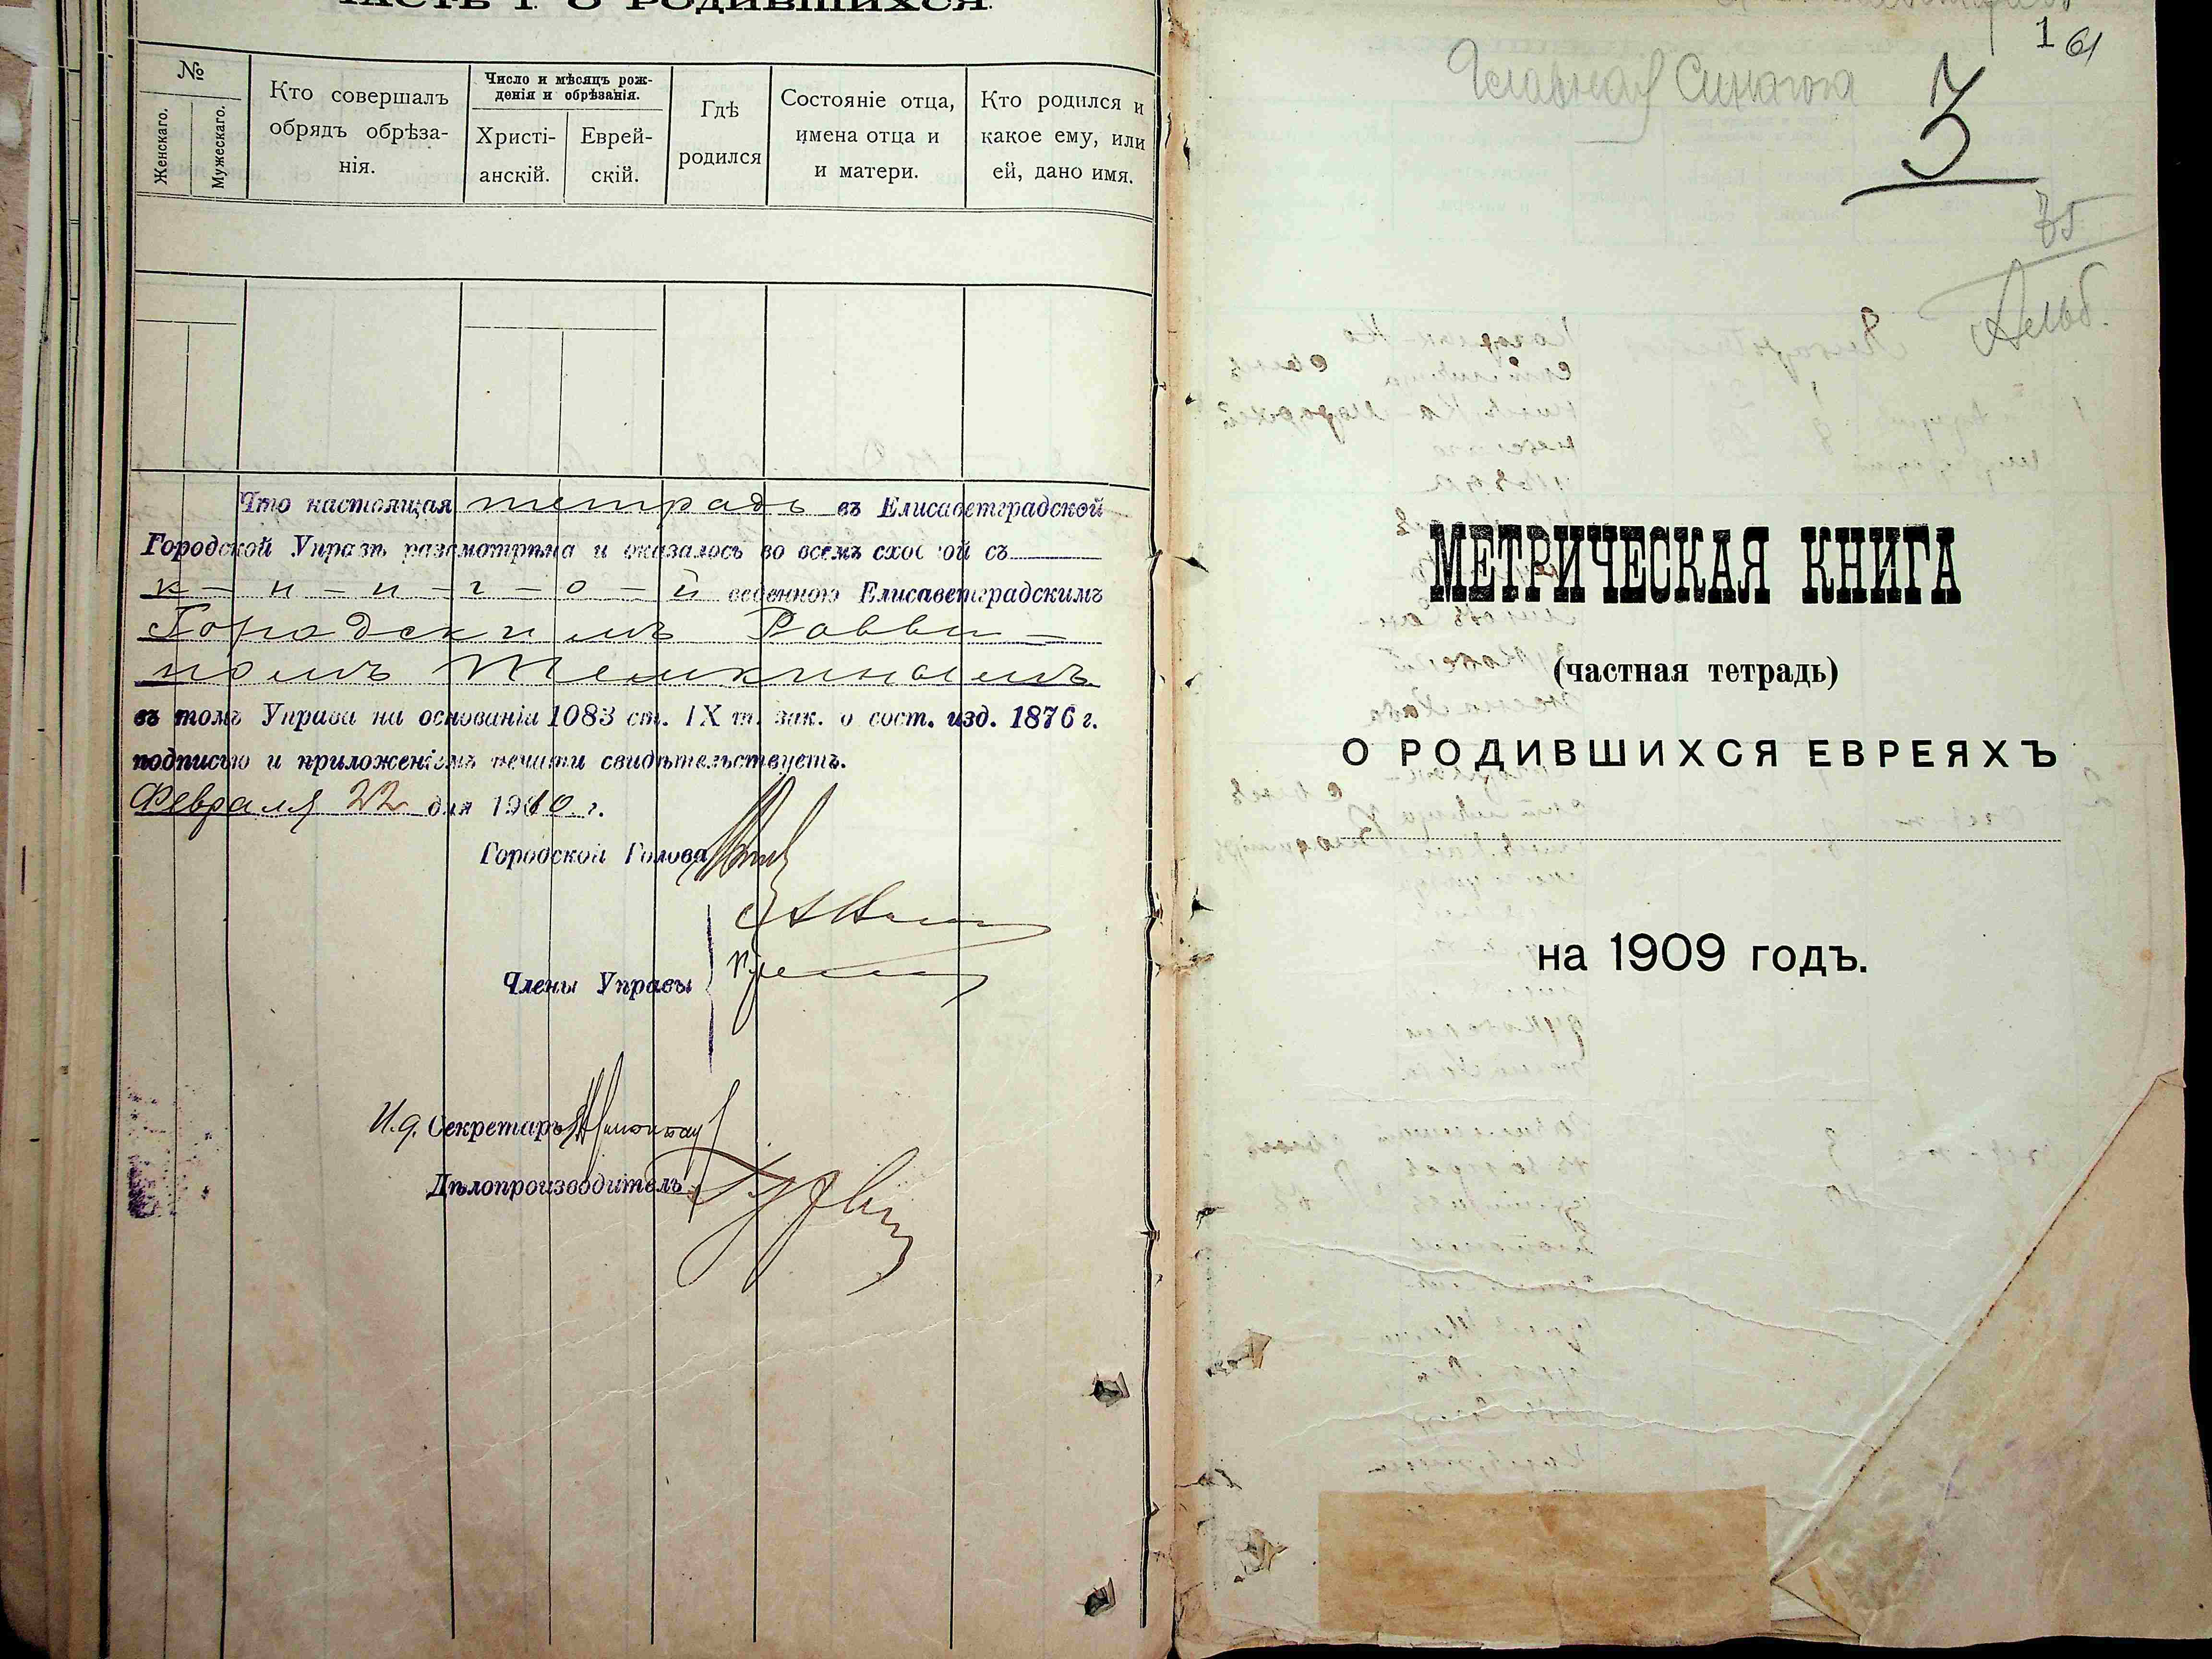 ЧАСТЬ I. О РОДИВШИХСЯ.
№
Женскаго.
Мужескаго.
Кто совершалъ
обрядъ обрѣза-
нія.
Число и мѣсяцъ рож-
денія и обрѣзанія.
Христі-
анскій.
Еврей-
скій.
Гдѣ
родился
Состояніе отца,
имена отца и
и матери.
Кто родился и
какое ему, или
ей, дано имя.
Что настоящая тетрадь въ Елисаветградской
Городской Управѣ разсмотрѣна и оказалось во всемъ сход ой съ
к-н-и-г-о-й веденною Елисаветградскимъ
Городскимъ Равви-
номъ Темкинымъ
въ томъ Управа на основаніи 1083 ст. IX т. зак. о сост. изд. 1876 г.
подписью и приложеніемъ печати свидѣтельствуетъ.
Февраля 22 дня 1910 г.
Городской Голова
Члены Управы
И.д. Секретарь
Дѣлопроизводитель
1 61
Главная Синагога
3
75
МЕТРИЧЕСКАЯ КНИГА
(частная тетрадь)
О РОДИВШИХСЯ ЕВРЕЯХЪ
на 1909 годъ.